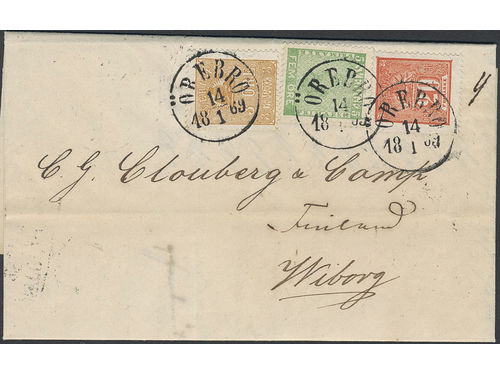 ÖREBRO
14
18 1 69
FRIMÄRKE
FEM ÖRE
ÖREBRO
14
18 1 69
ÖREBRO
14
18 1 69
C. G. Clouberg & Comp
Finland
Wiborg